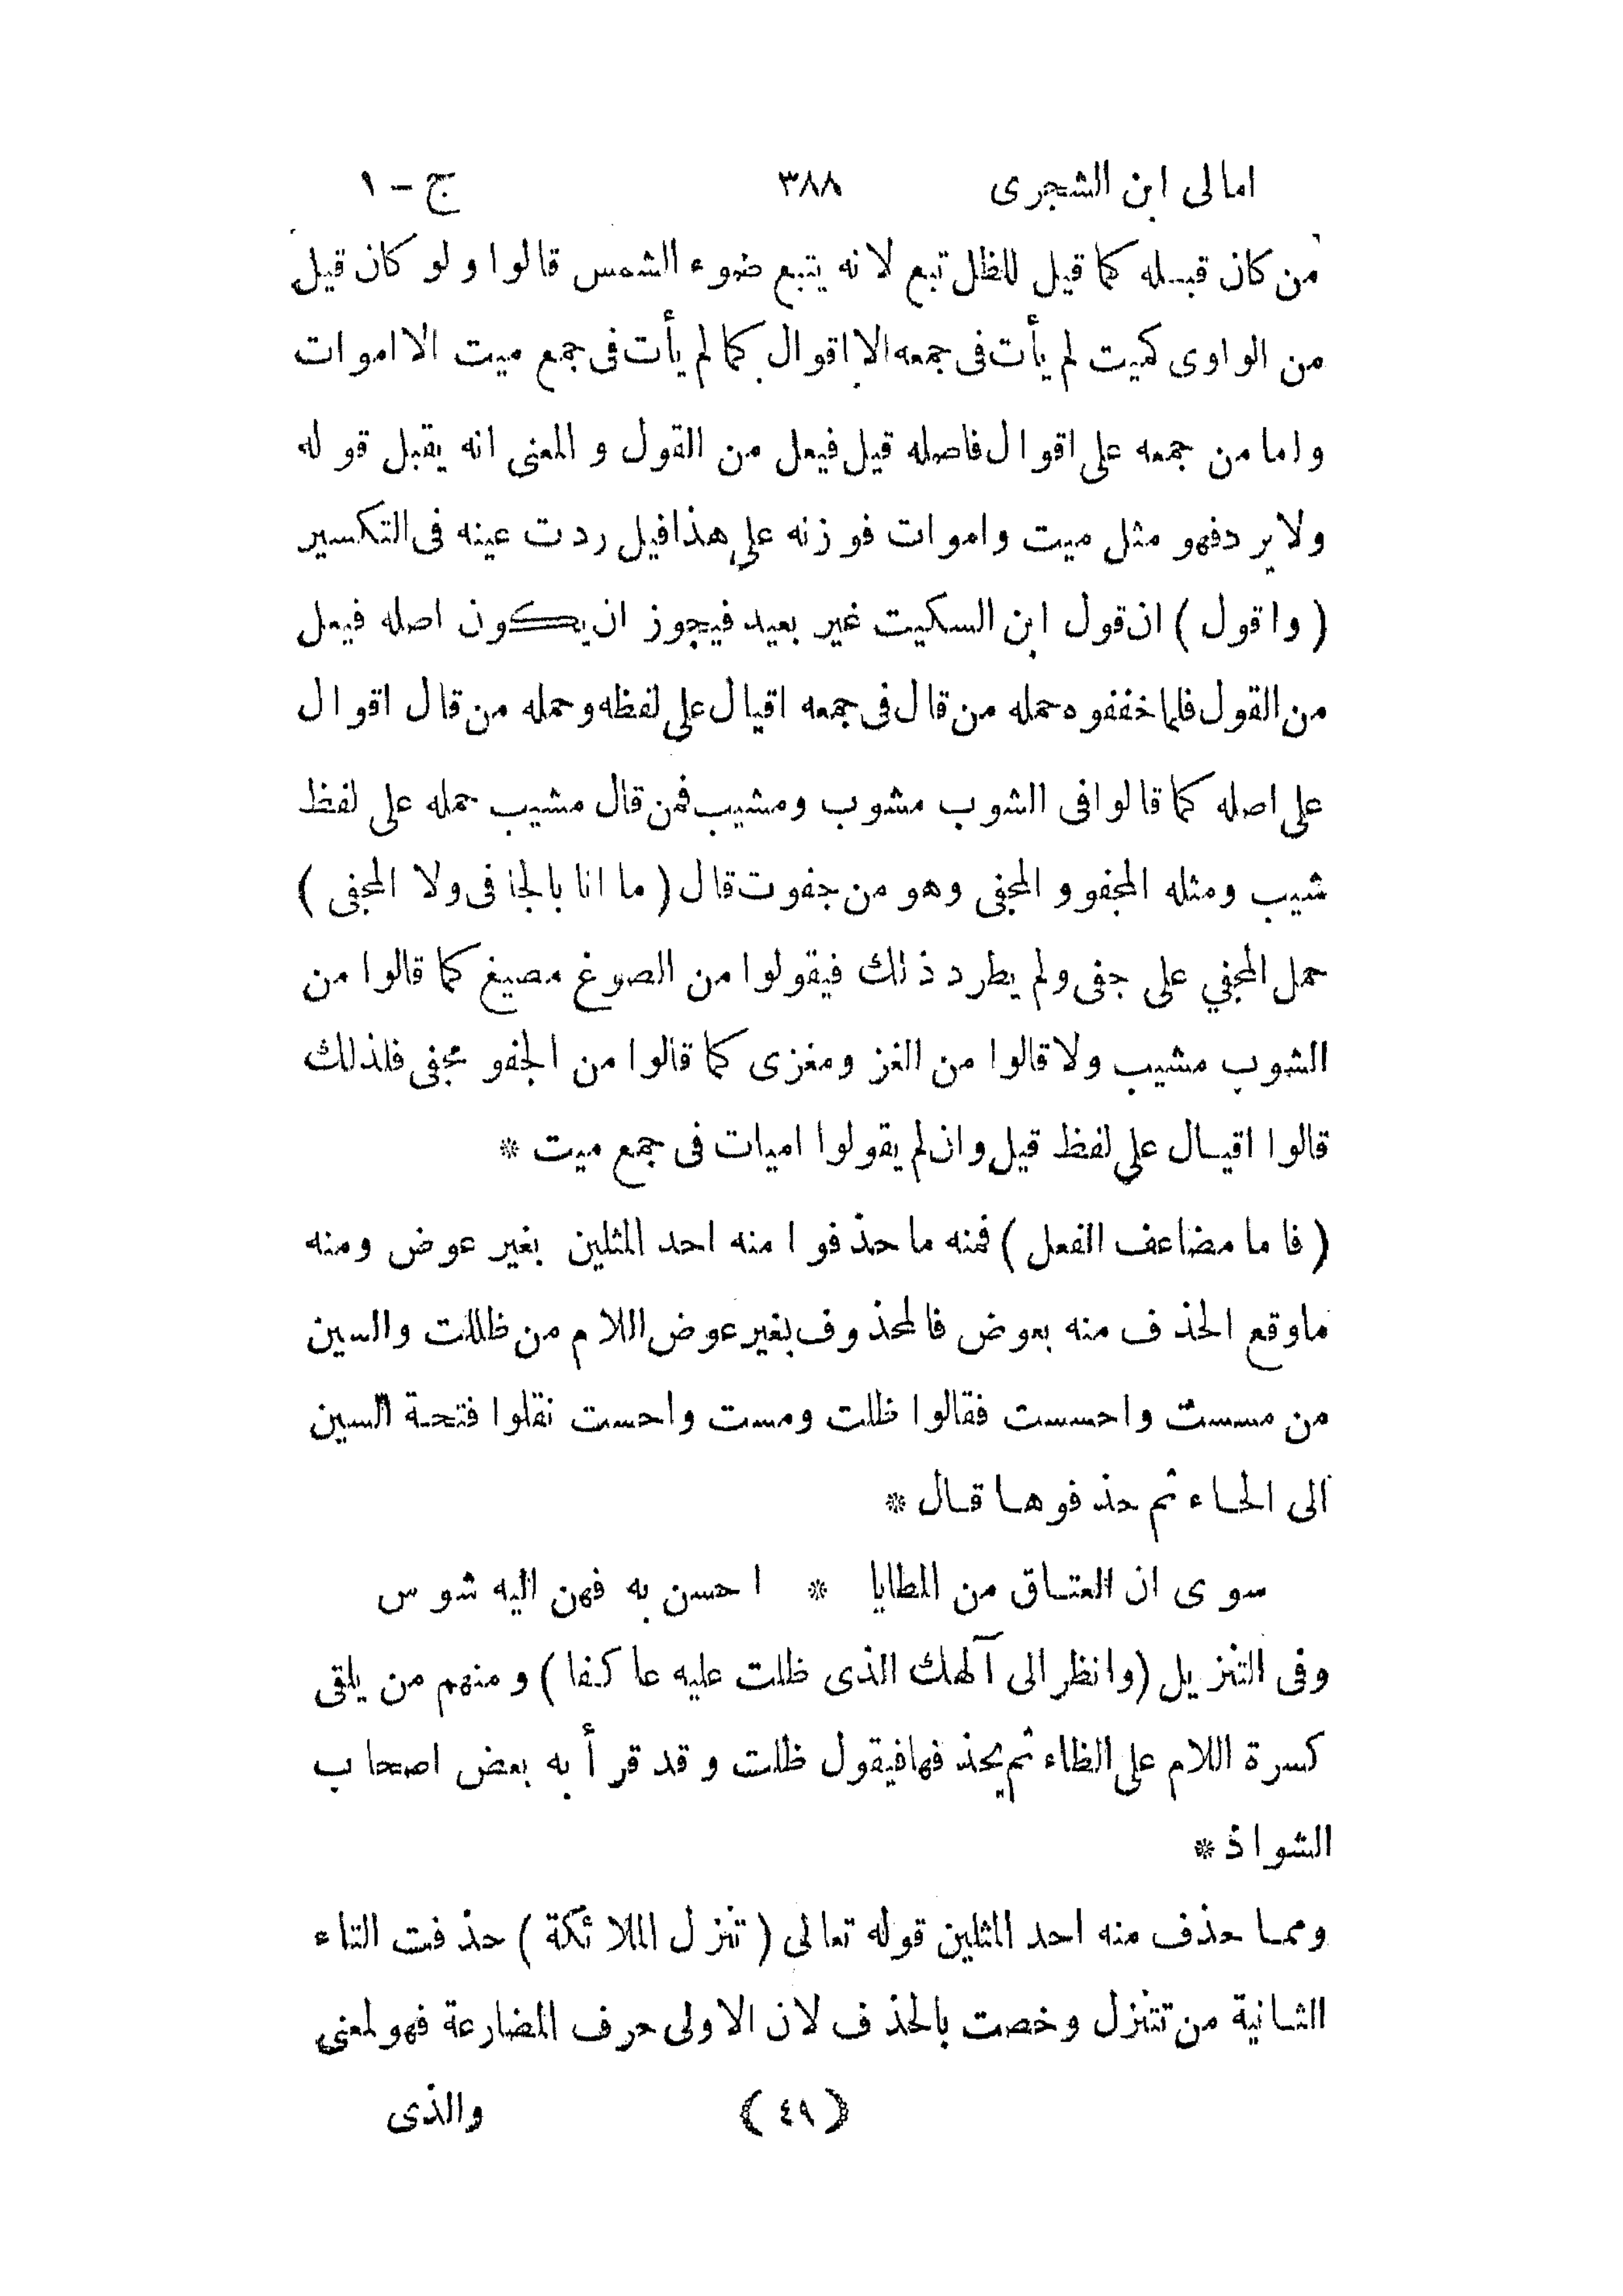 امالى ابن الشجرى ٣٨٨ ج - ١
من كان قبله كما قيل للظل تبع لانه يتبع ضوء الشمس قالوا ولو كان قيل
من الواوى كميت لم يأت فى جمعه الا اقوال كما لم يأت فى جمع ميت الا اموات
واما من جمعه على اقوال فاصله قيل فيعل من القول والمعنى انه يقبل قوله
ولا يرد فهو مثل ميت واموات فوزنه على هذا فيل ردت عينه فى التكسير
( واقول ) ان قول ابن السكيت غير بعيد فيجوز ان يكون اصله فيعل
من القول فلما خففوه حمله من قال فى جمعه اقيال على لفظه وحمله من قال اقوال
على اصله كما قالوا فى الشوب مشوب ومشيب فمن قال مشيب حمله على لفظ
شيب ومثله المجفو والمجفى وهو من جفوت قال ( ما انا بالجافى ولا المجفى )
حمل المجفي على جفى ولم يطرد ذلك فيقولوا من الصوغ مصيغ كما قالوا من
الشوب مشيب ولا قالوا من الغزو مغزى كما قالوا من الجفو مجفى فلذلك
قالوا اقيال على لفظ قيل وان لم يقولوا اميات فى جمع ميت *
( فاما مضاعف الفعل ) فمنه ما حذفوا منه احد المثلين بغير عوض ومنه
ماوقع الحذف منه بعوض فالمحذوف بغير عوض اللام من ظللت والسين
من مسست واحسست فقالوا ظلت ومست واحست نقلوا فتحة السين
الى الحاء ثم حذفوها قال *
سوى ان العتاق من المطايا * احسن به فهن اليه شوس
وفى التنزيل ( وانظر الى آلهك الذى ظلت عليه عاكفا ) ومنهم من يلقى
كسرة اللام على الظاء ثم يحذفها فيقول ظلت وقد قرأ به بعض اصحاب
الشواذ *
ومما حذف منه احد المثلين قوله تعالى ( تنزل الملائكة ) حذفت التاء
الثانية من تتنزل وخصت بالحذف لان الاولى حرف المضارعة فهو لمعنى
( ٤٩ ) والذى